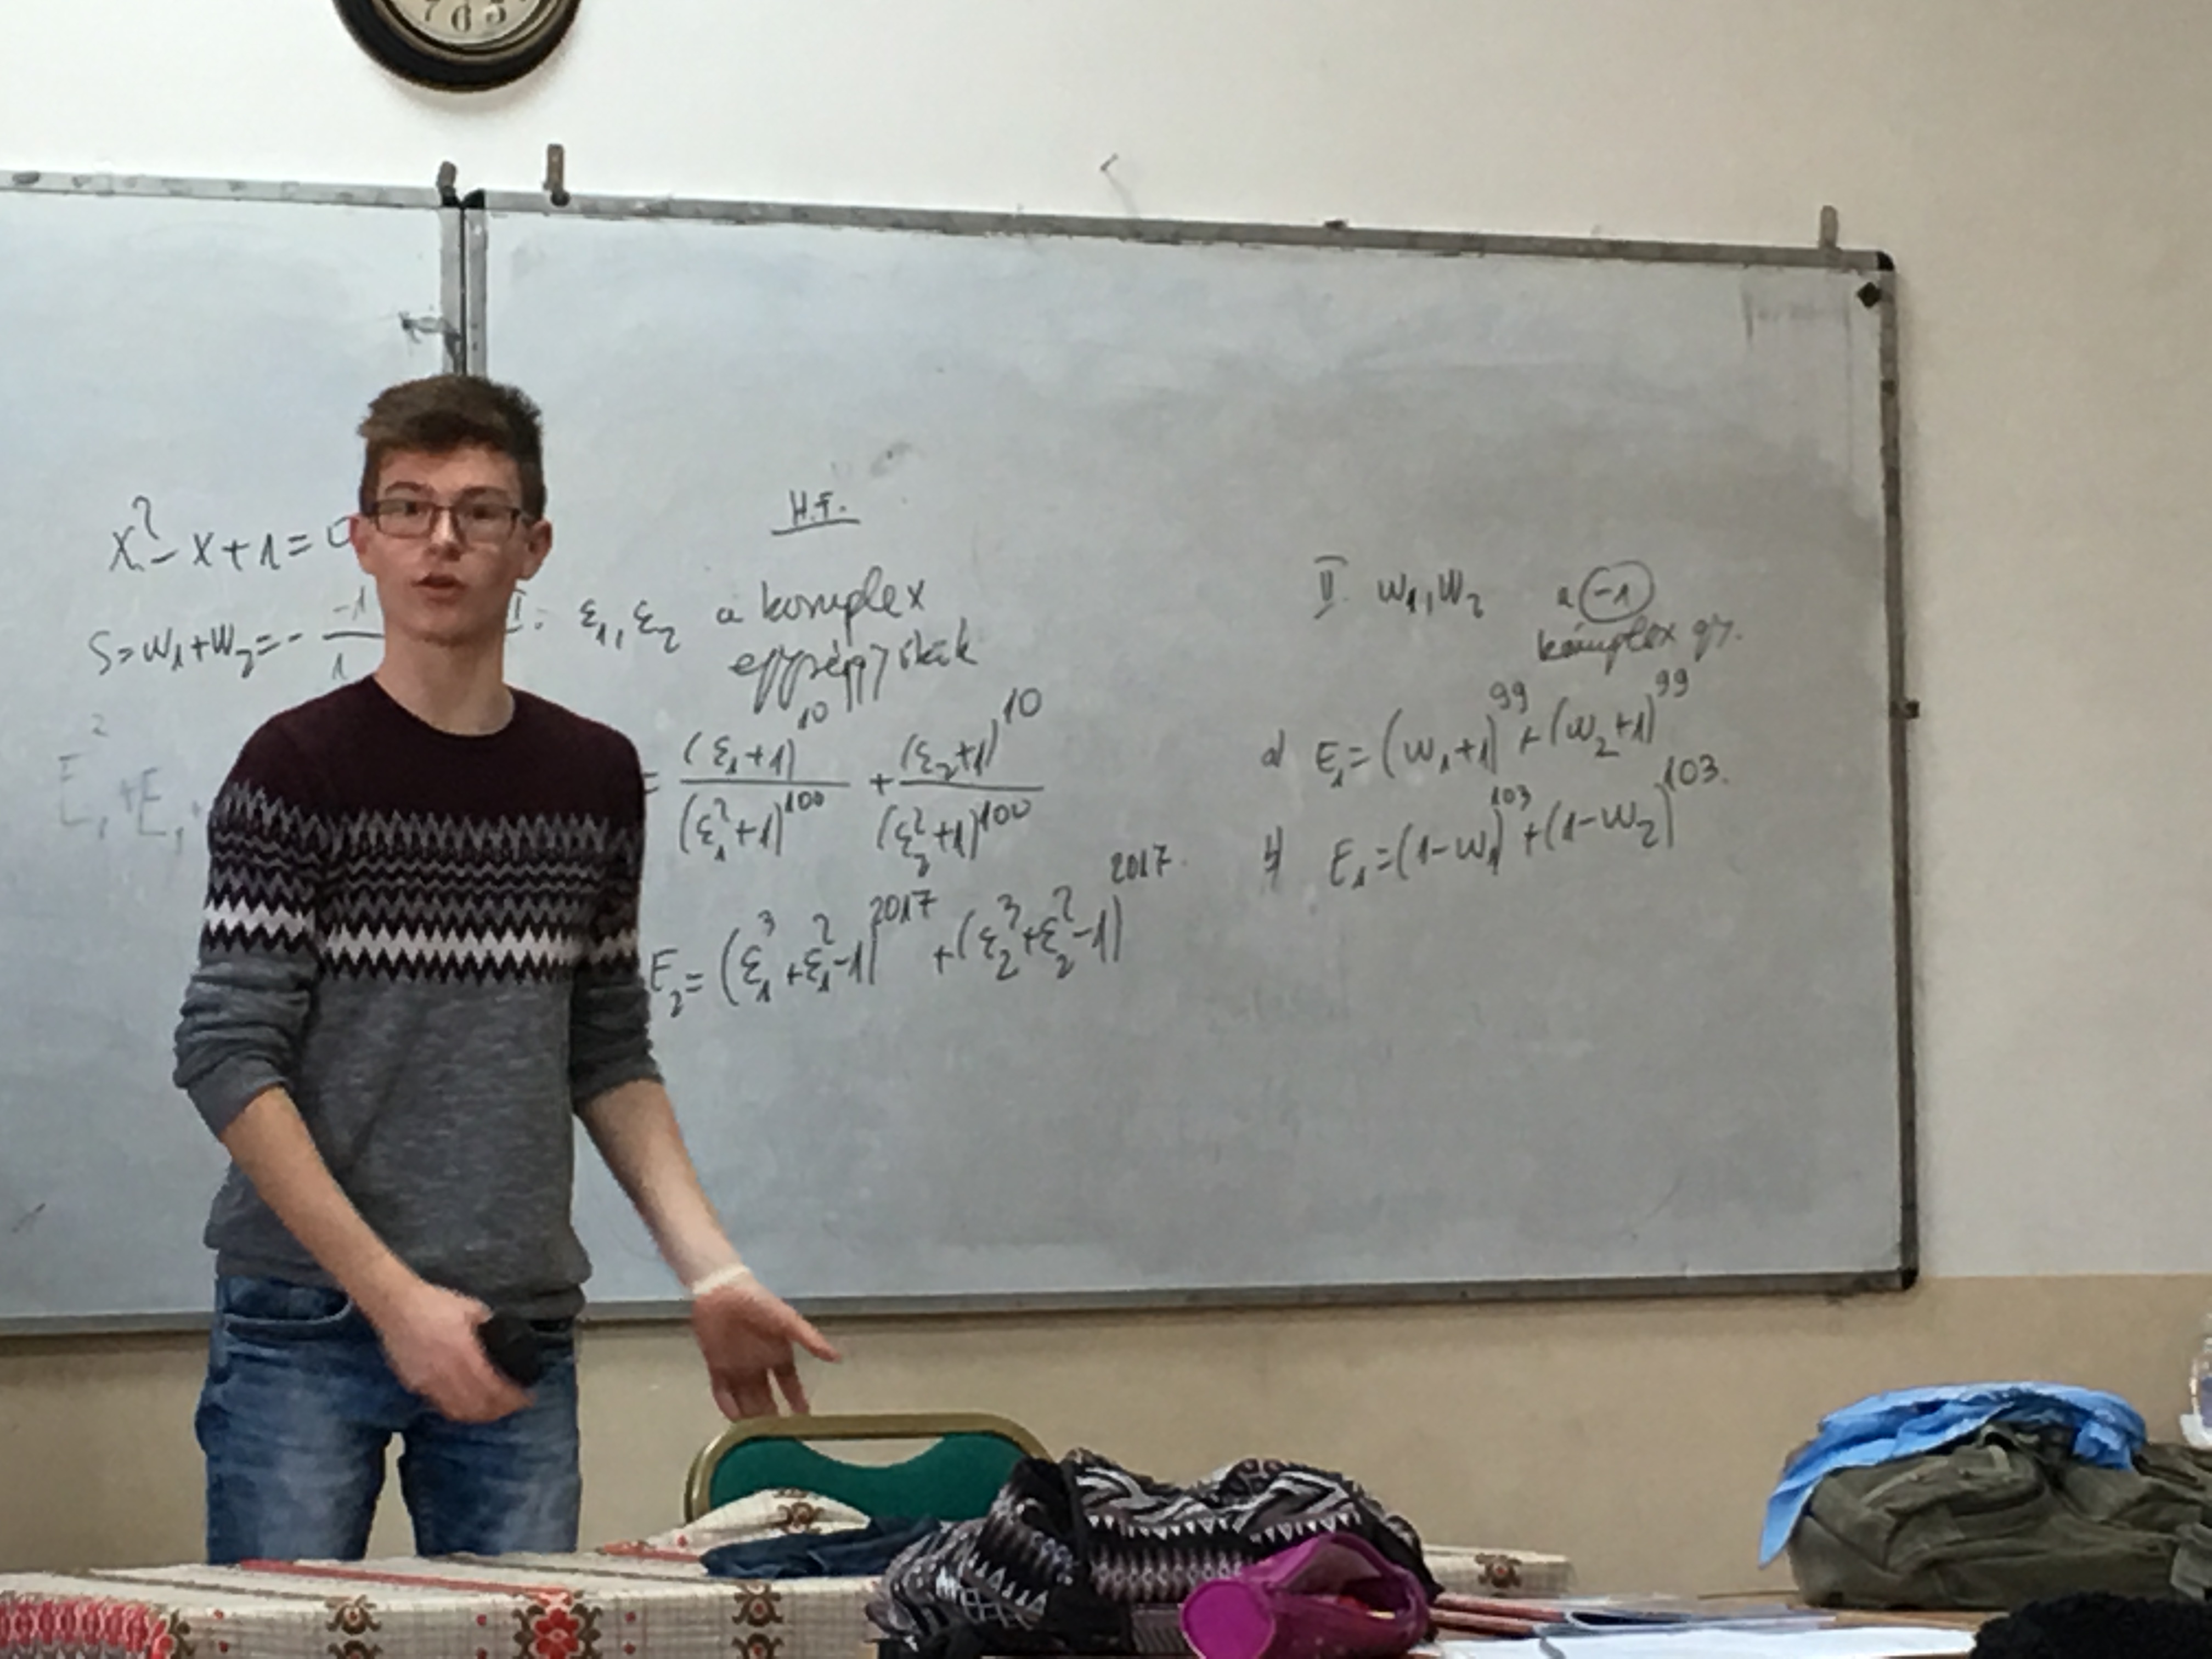 7 6 5
x² - x + 1 = 0
S = w₁ + w₂ = - -1/1
E₁² + E₁
H.F.
I. ε₁, ε₂ a komplex
egységgyökök
= (ε₁+1)¹⁰/(ε₁²+1)¹⁰⁰ + (ε₂+1)¹⁰/(ε₂²+1)¹⁰⁰
E₂ = (ε₁³+ε₁²-1)²⁰¹⁷ + (ε₂³+ε₂²-1)²⁰¹⁷
II. w₁, w₂ a -1
komplex gy.
a) E₁ = (w₁+1)⁹⁹ + (w₂+1)⁹⁹
b) E₁ = (1-w₁)¹⁰³ + (1-w₂)¹⁰³.